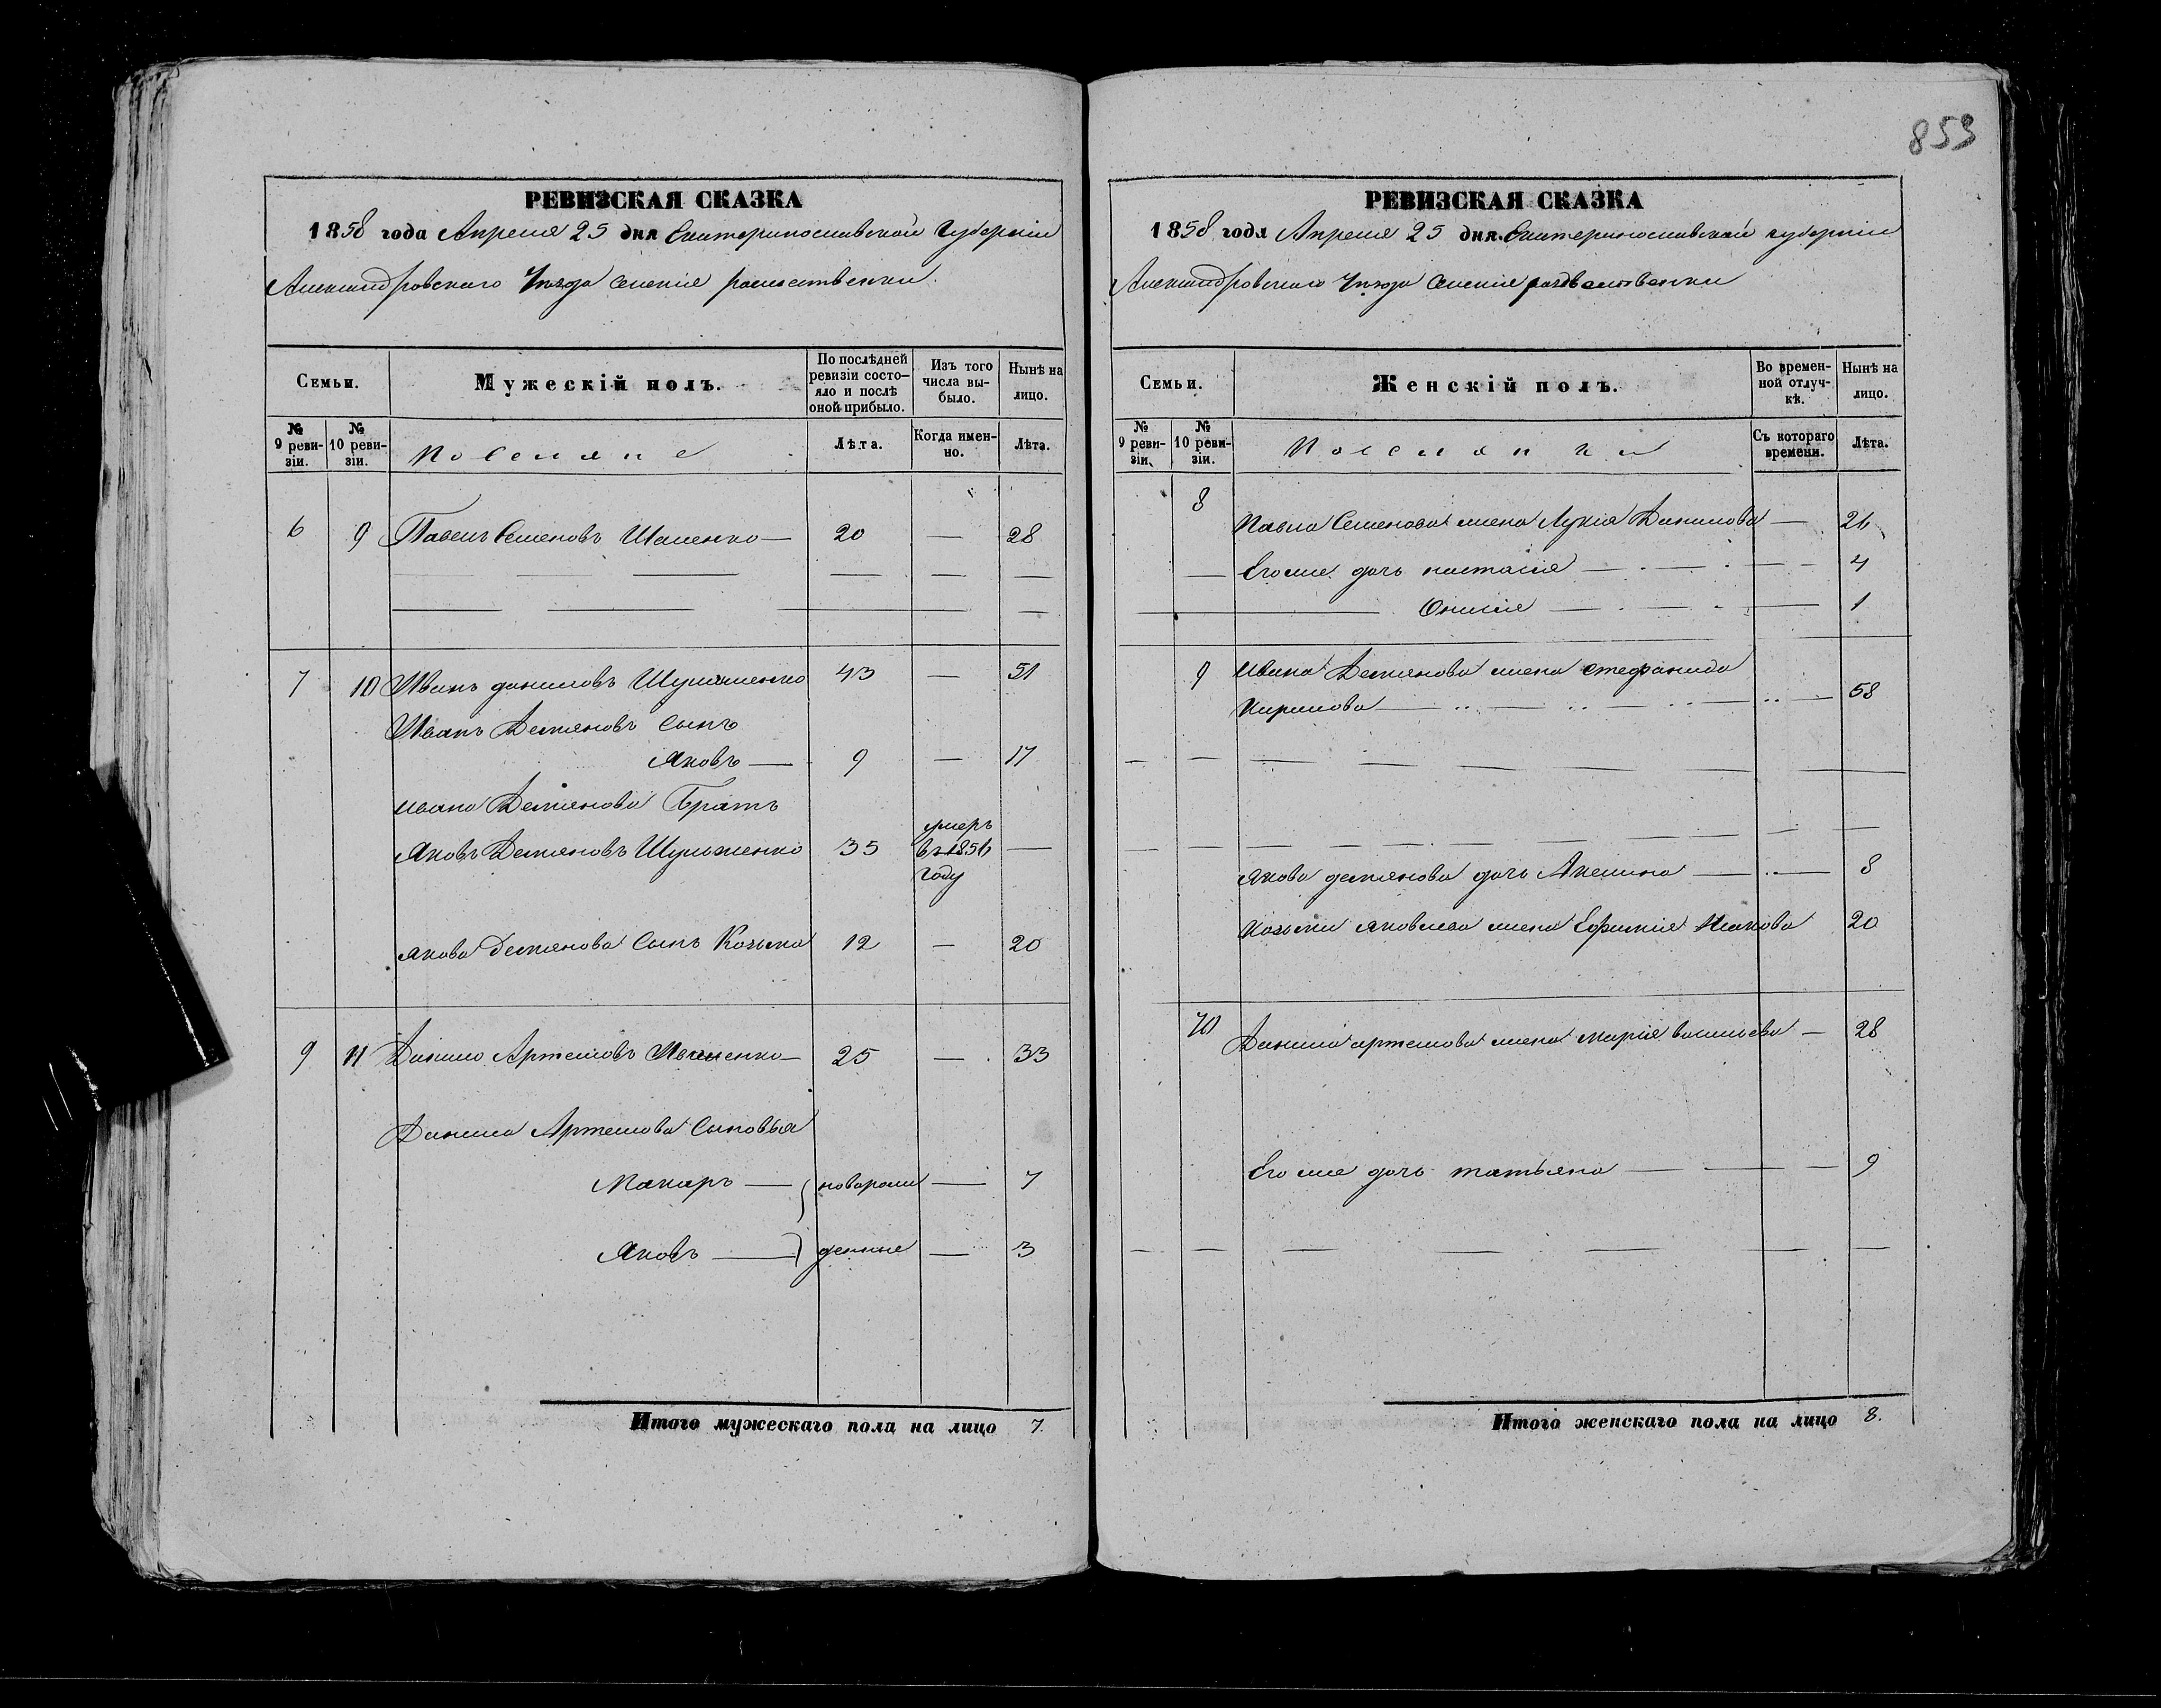 853
РЕВИЗСКАЯ СКАЗКА
1858 года Апреля 25 дня Екатеринославской Губерніи
Александровскаго Уезда Селенія
Семьи.
Мужескій полъ.
По послѣдней ревизіи состояло и послѣ оной прибыло.
Изъ того числа выбыло.
Нынѣ на лицо.
№ 9 ревизіи.
№ 10 ревизіи.
Поселяне
Лѣта.
Когда именно.
Лѣта.
6 9 Павелъ Семеновъ 20 — 28
7 10 Иванъ 43 — 51
Иванъ Демяновъ Сынъ
Яковъ — 9 — 17
Ивана Демянова Братъ
Яковъ Демяновъ 35 умеръ въ 1856 году —
Якова Демянова Сынъ Козьма 12 — 20
9 11 Данило Артемовъ Иваненко — 25 — 33
Данила Артемова Сыновья
Макаръ — новорож — 7
Яковъ — денные — 3
Итого мужескаго пола на лицо 7.
РЕВИЗСКАЯ СКАЗКА
1858 года Апреля 25 дня Екатеринославской губерніи
Александровскаго Уезда Селенія
Семьи.
Женскій полъ.
Во временной отлучкѣ.
Нынѣ на лицо.
№ 9 ревизіи.
№ 10 ревизіи.
Поселянки
Съ котораго времени.
Лѣта.
8 Павла Семенова жена Лукія Данилова — 26
Его же дочь настасія — 4
— 1
9 Ивана Демянова жена стефанида
Кирилова — 58
Якова демянова дочь Акелина — 8
Козьми яковлева жена Ефимія 20
10 Данила артемова жена марія васильева — 28
Его же дочь татьяна — 9
Итого женскаго пола на лицо 8.